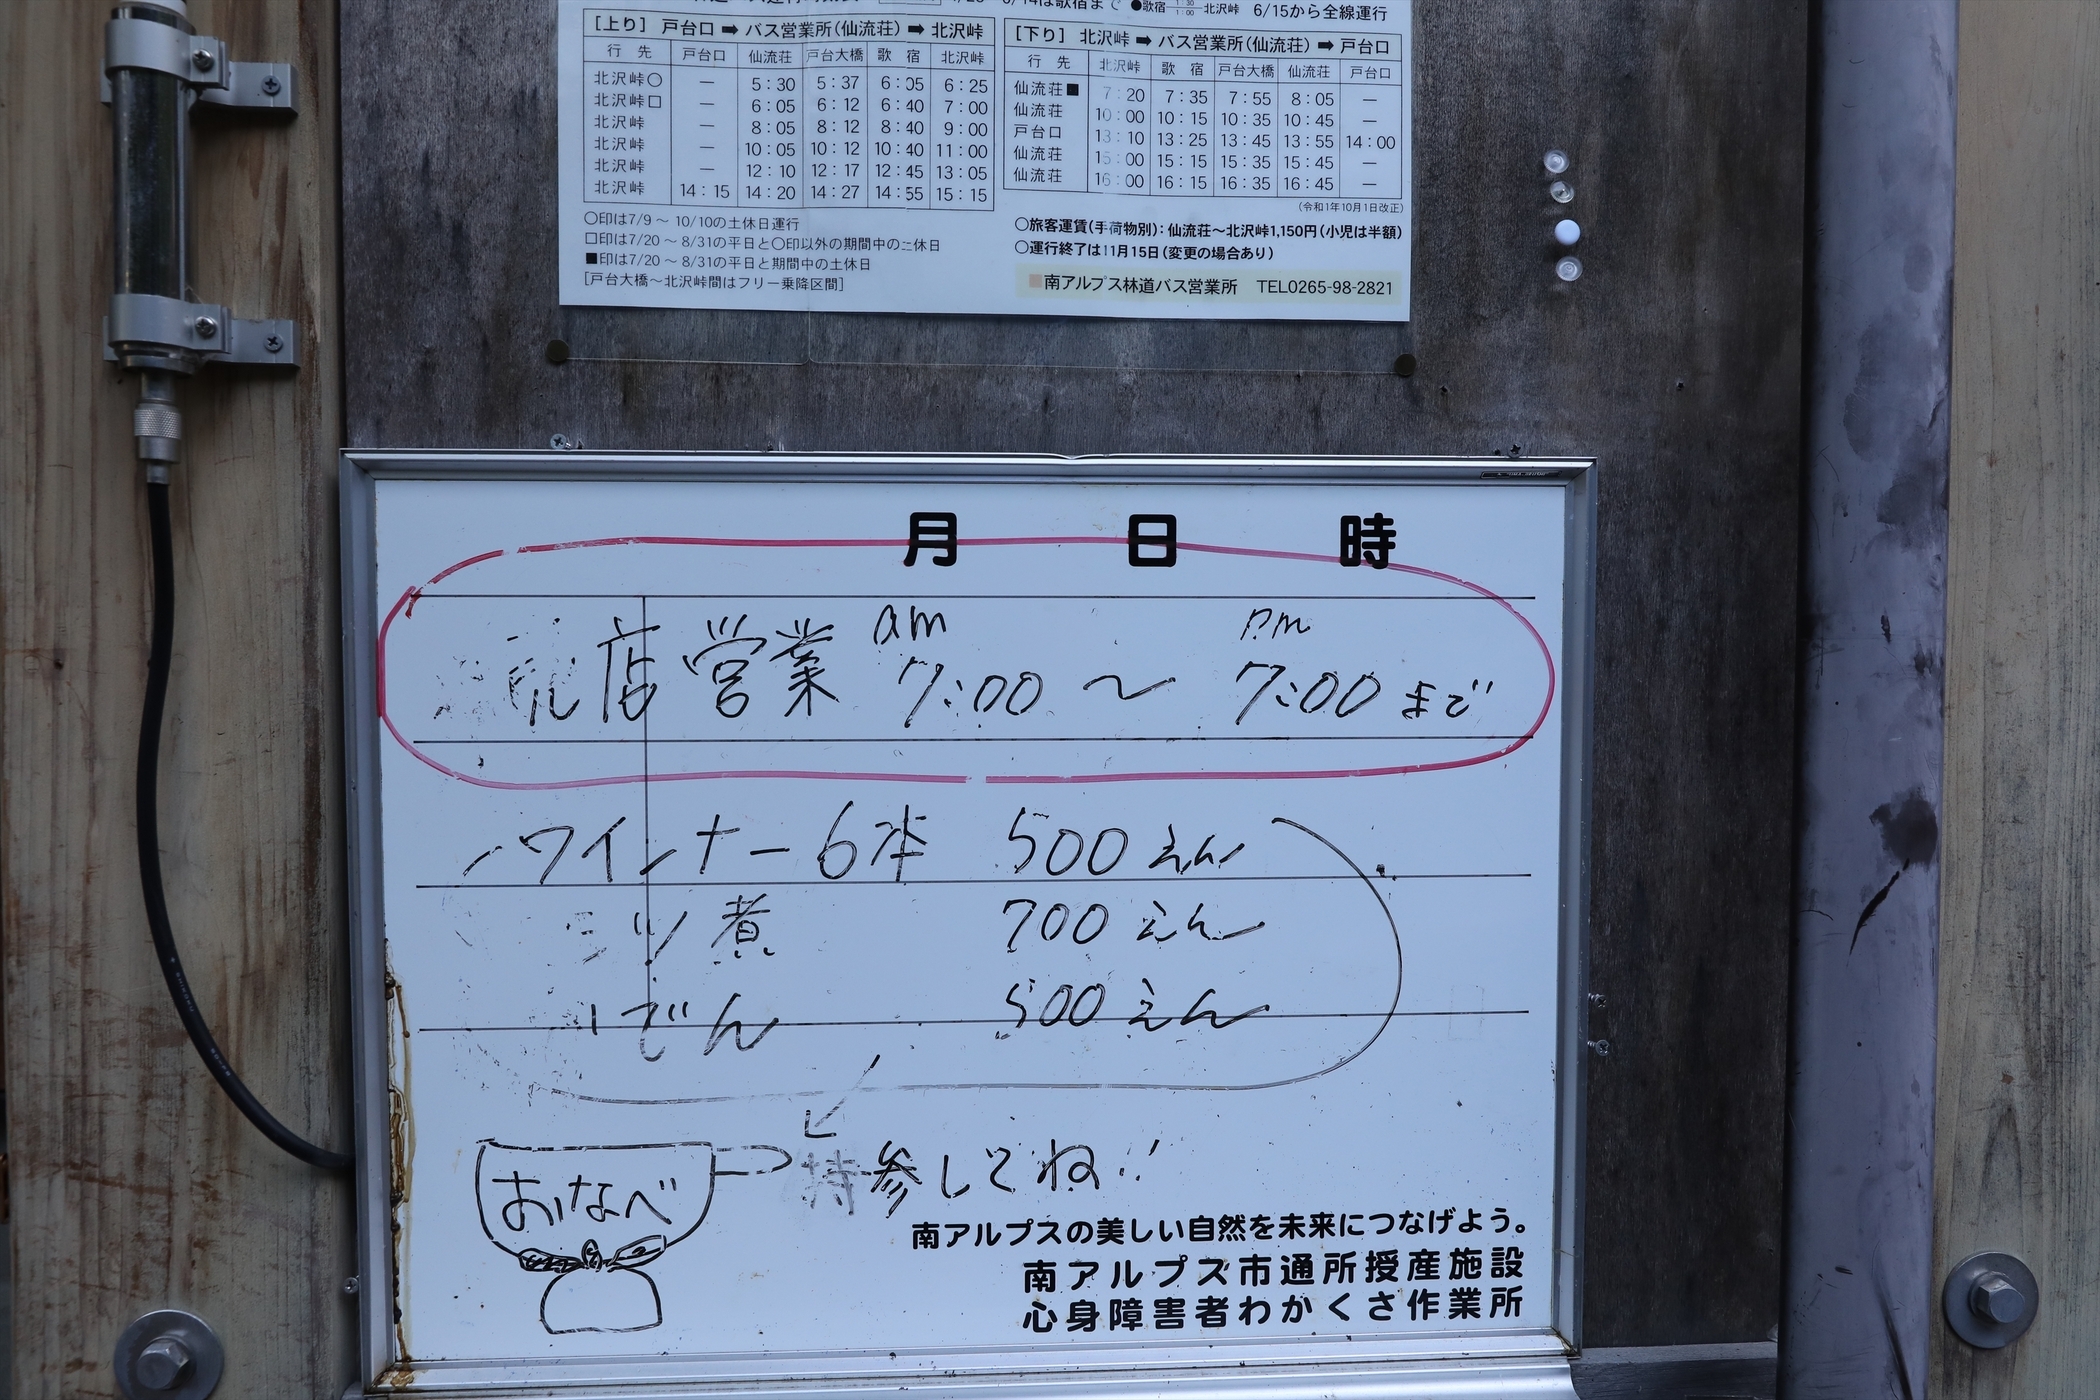 6/15から全線運行
[上り] 戸台口 ➡ バス営業所(仙流荘) ➡ 北沢峠
行 先 戸台口 仙流荘 戸台大橋 歌 宿 北沢峠
北沢峠○ — 5:30 5:37 6:05 6:25
北沢峠□ — 6:05 6:12 6:40 7:00
北沢峠 — 8:05 8:12 8:40 9:00
北沢峠 — 10:05 10:12 10:40 11:00
北沢峠 — 12:10 12:17 12:45 13:05
北沢峠 14:15 14:20 14:27 14:55 15:15
○印は7/9～10/10の土休日運行
□印は7/20～8/31の平日と○印以外の期間中の土休日
■印は7/20～8/31の平日と期間中の土休日
[戸台大橋～北沢峠間はフリー乗降区間]
[下り] 北沢峠 ➡ バス営業所(仙流荘) ➡ 戸台口
行 先 北沢峠 歌 宿 戸台大橋 仙流荘 戸台口
仙流荘■ 7:20 7:35 7:55 8:05 —
仙流荘 10:00 10:15 10:35 10:45 —
戸台口 13:10 13:25 13:45 13:55 14:00
仙流荘 15:00 15:15 15:35 15:45 —
仙流荘 16:00 16:15 16:35 16:45 —
(令和1年10月1日改正)
○旅客運賃(手荷物別):仙流荘～北沢峠1,150円(小児は半額)
○運行終了は11月15日(変更の場合あり)
南アルプス林道バス営業所 TEL0265-98-2821
月 日 時
店営業 am 7:00 ～ pm 7:00 まで
ウインナー6本 500えん
ツ煮 700えん
でん 500えん
おなべ 持参してね!!
南アルプスの美しい自然を未来につなげよう。
南アルプス市通所授産施設
心身障害者わかくさ作業所